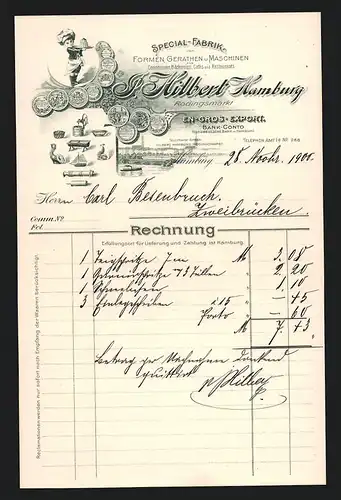 SPECIAL-FABRIK
FORMEN, GERÄTHEN u. MASCHINEN
J. Hilbert Hamburg
Rödingsmarkt
EN-GROS - EXPORT.
BANK-CONTO
Hamburg 28. Novbr. 1900.
Herrn Carl Besenbruch.
Zweibrücken.
Comm. No
Fol.
Rechnung
Erfüllungsort für Lieferung und Zahlung ist Hamburg.
1 Teigspritze 7 cm M 3.08
1 2.20
1 1.10
3 à 15 - 45
Porto - 60
M 7.43
Betrag per Nachnahme dankend
quittirt
Hilbert
Reclamationen werden nur sofort nach Empfang der Waaren berücksichtigt.